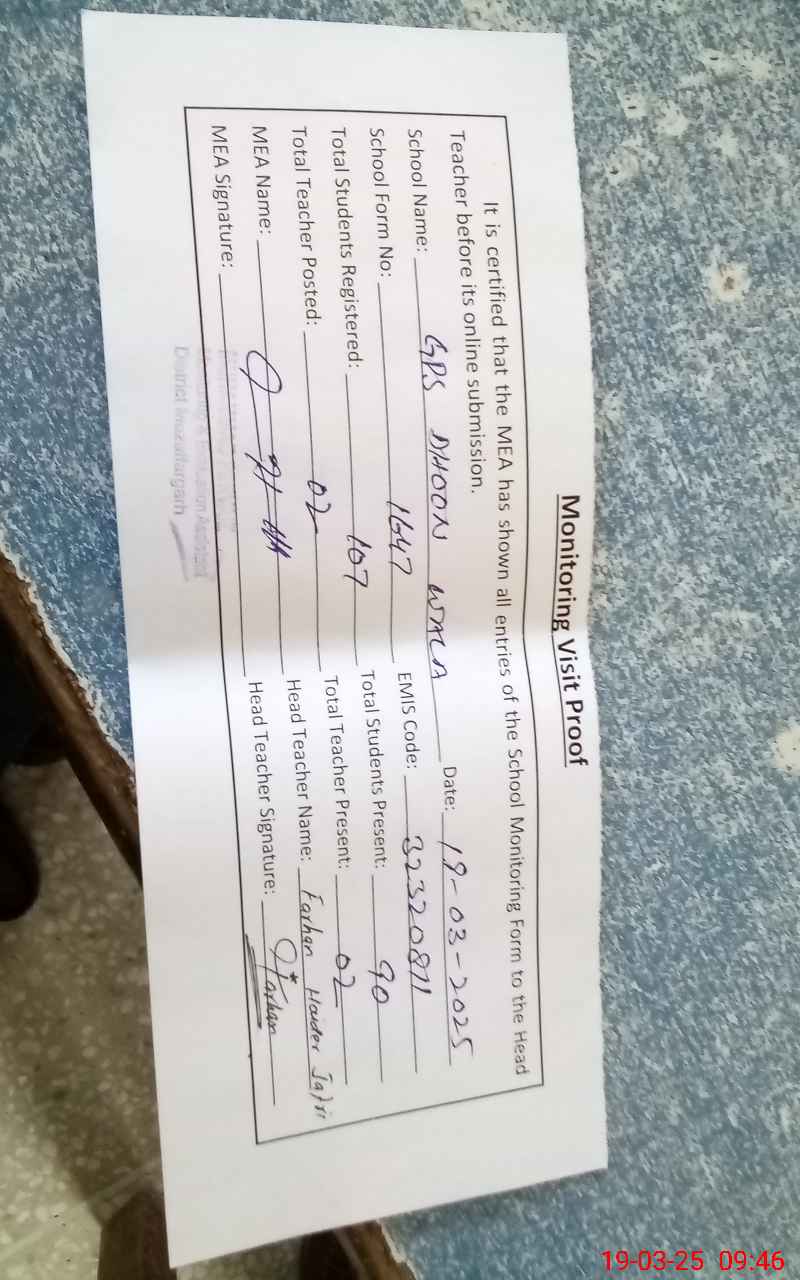 Monitoring Visit Proof
It is certified that the MEA has shown all entries of the School Monitoring Form to the Head
Teacher before its online submission.
School Name: GPS DHOON WALA Date: 19-03-2025
School Form No: 1647 EMIS Code: 32320871
Total Students Registered: 107 Total Students Present: 90
Total Teacher Posted: 02 Total Teacher Present: 02
MEA Name: Head Teacher Name: Farhan Haider Jafri
MEA Signature: Head Teacher Signature: Farhan
District Muzaffargarh
19-03-25 09:46